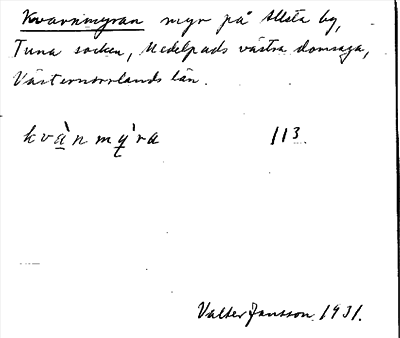 Kvarnmyran myr på Allsta by,
Tuna socken, Medelpads västra domsaga,
Västernorrlands län.
kvà̱nmỳ̱ra 113.
Valter Jansson 1931.